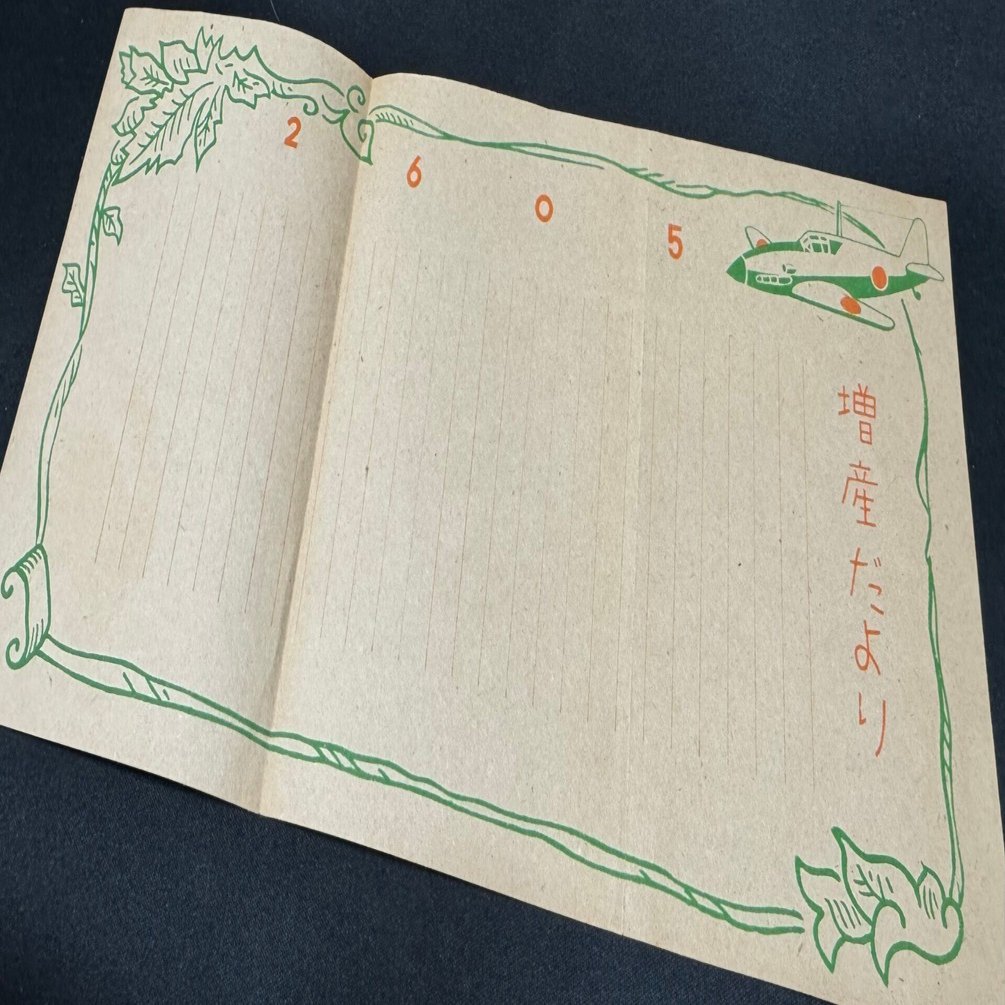 2605
増産だより